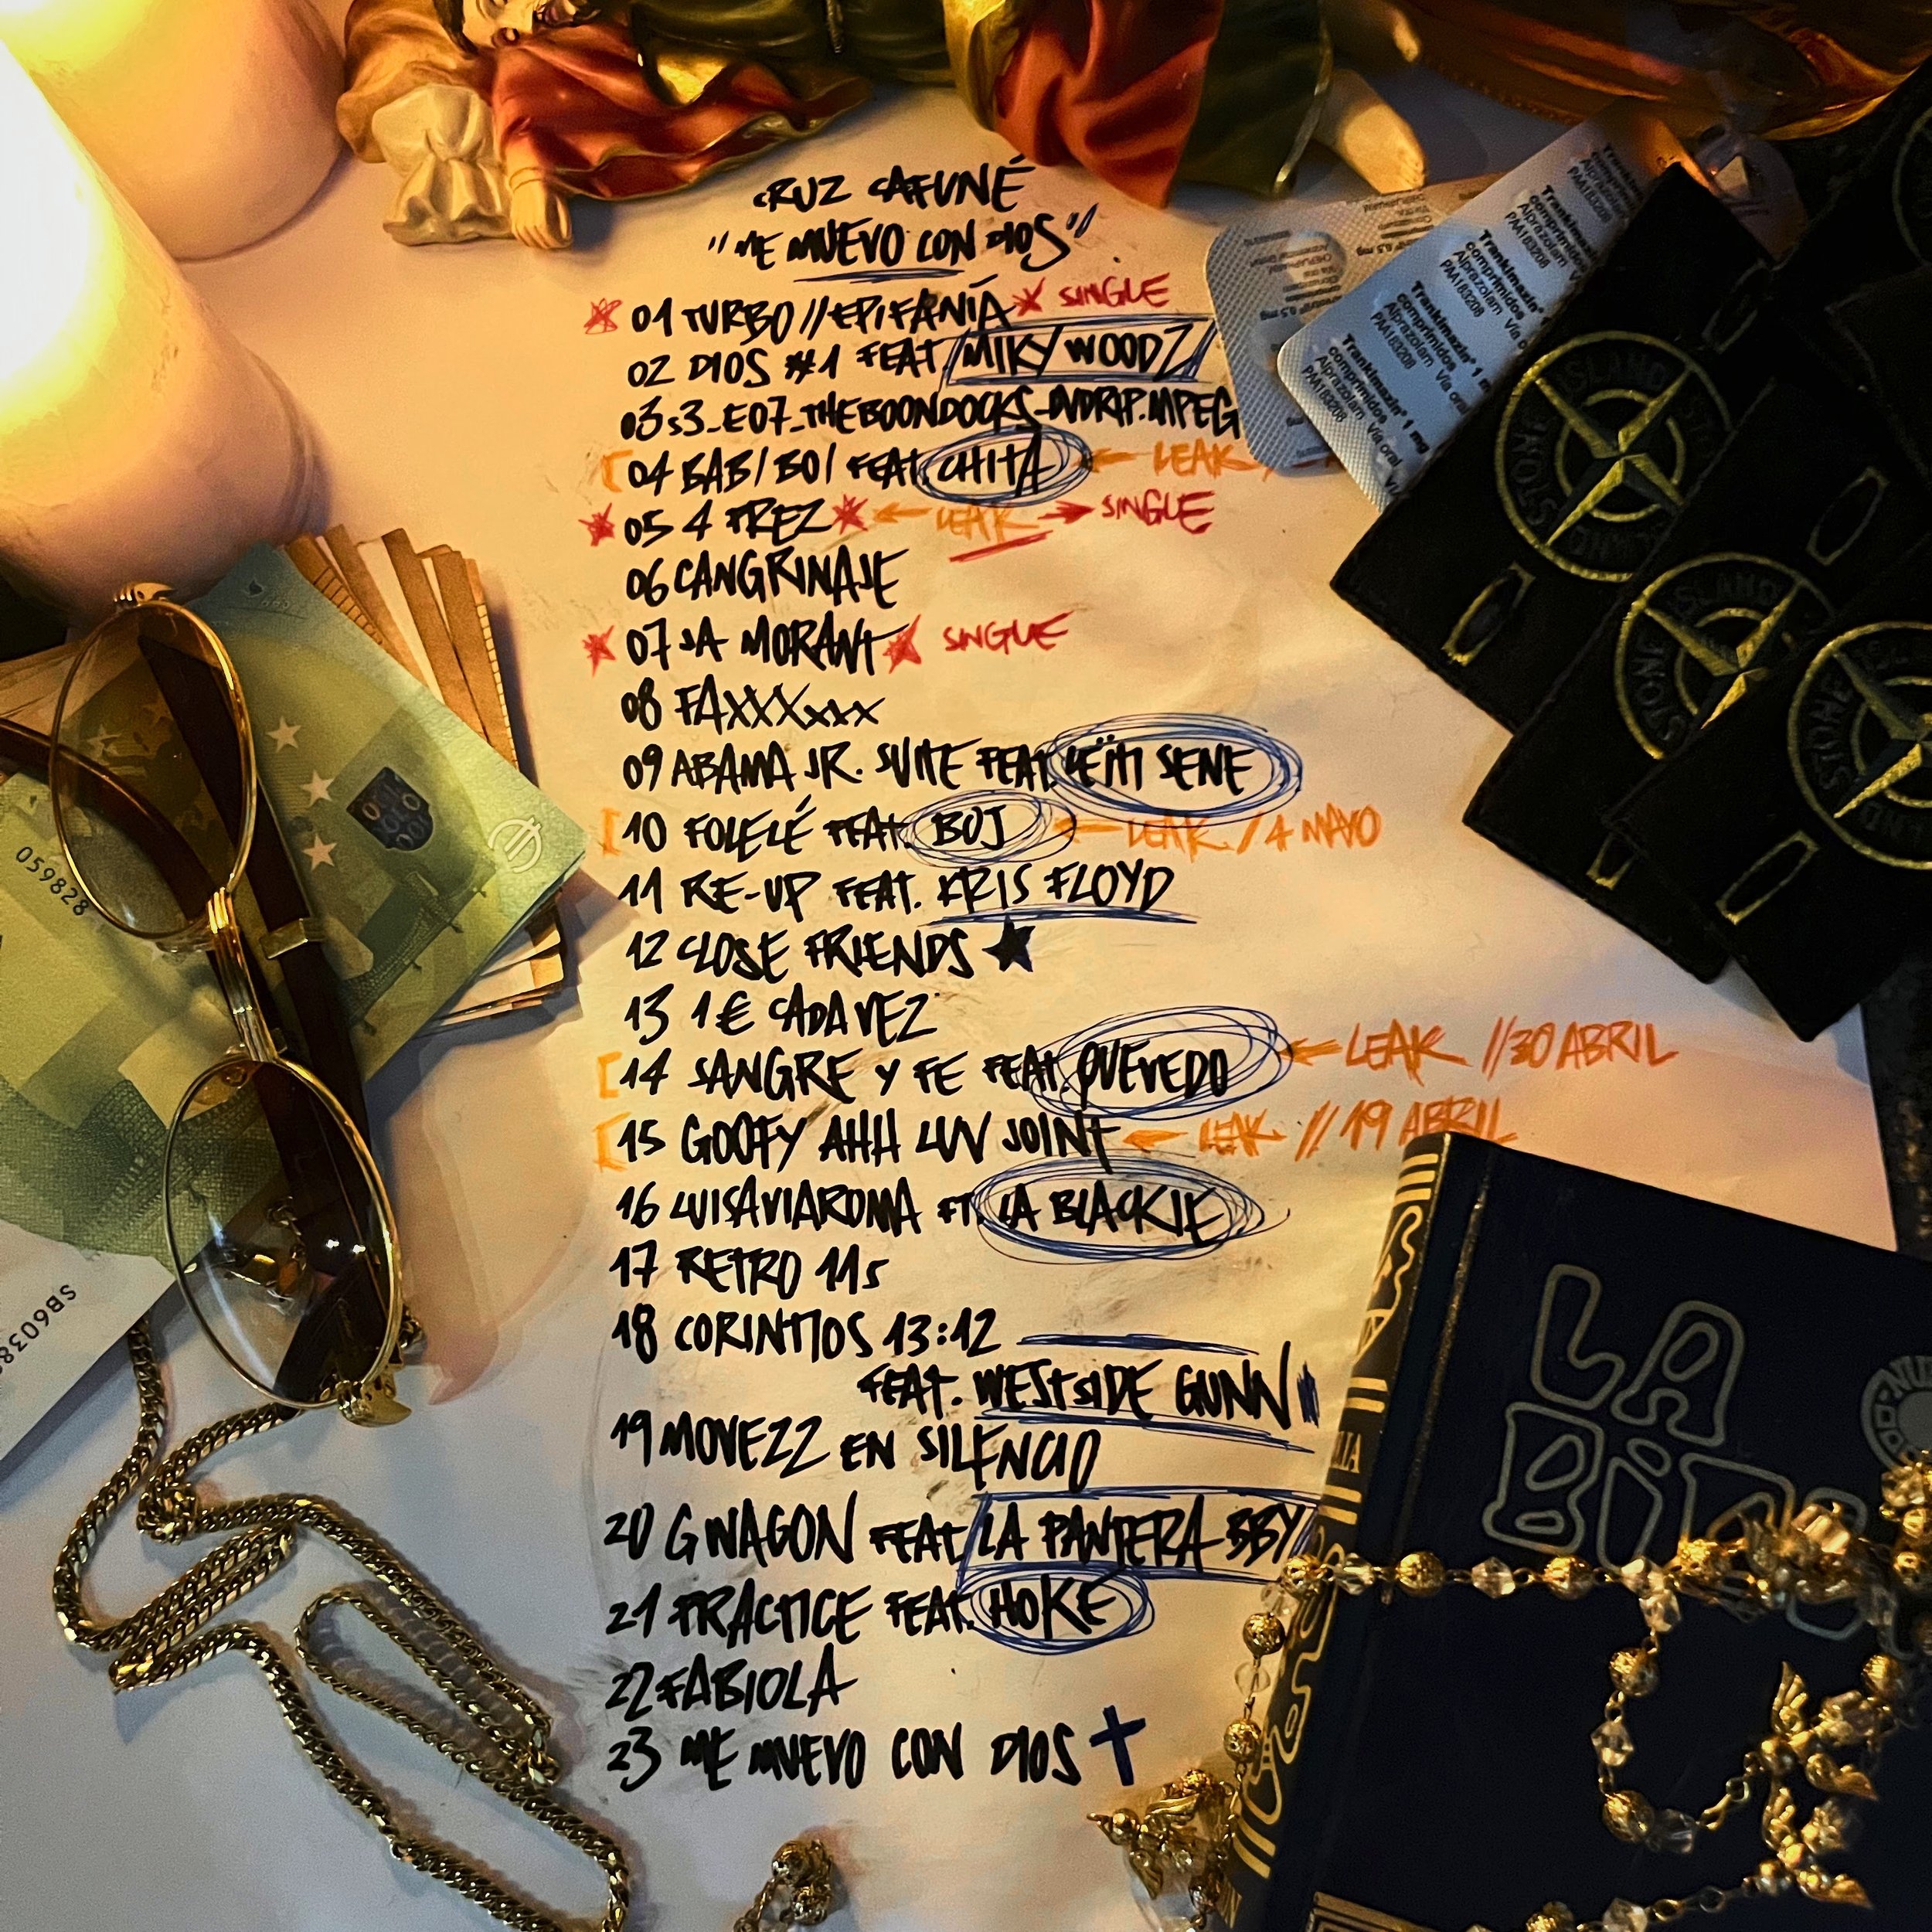 CRUZ CAFUNÉ
"ME MUEVO CON DIOS"
01 TURBO // EPIFANÍA SINGLE
02 DIOS #1 FEAT MIKY WOODZ
03 S3_E07_THEBOONDOCKS_DVDRIP.MPEG
04 BAB/BO/ FEAT. CHITA ← LEAK /
05 4 PREZ ← LEAK → SINGLE
06 CANGRINAJE
07 JA MORANT SINGLE
08 FAXXXxxx
09 ABAMA JR. SUITE FEAT. LËITI SENE
10 FOLELÉ FEAT. BOJ ← LEAK / 4 MAYO
11 RE-UP FEAT. KRIS FLOYD
12 CLOSE FRIENDS ★
13 1€ CADA VEZ
14 SANGRE Y FE FEAT. QUEVEDO ← LEAK // 30 ABRIL
15 GOOFY AHH LUV JOINT ← LEAK // 19 ABRIL
16 LUISAVIAROMA FT. LA BLACKIE
17 RETRO 11s
18 CORINTIOS 13:12
FEAT. WESTSIDE GUNN
19 MOVEZZ EN SILENCIO
20 G WAGON FEAT. LA PANTERA BBY
21 PRACTICE FEAT. HOKE
22 FABIOLA
23 ME MUEVO CON DIOS
Trankimazin® 1 mg
comprimidos
Alprazolam Vía oral
PAA183208
Trankimazin® 1 mg
comprimidos
Alprazolam Vía oral
PAA183208
STONE ISLAND
STONE ISLAND
STONE ISLAND
059828
SB6038
LA